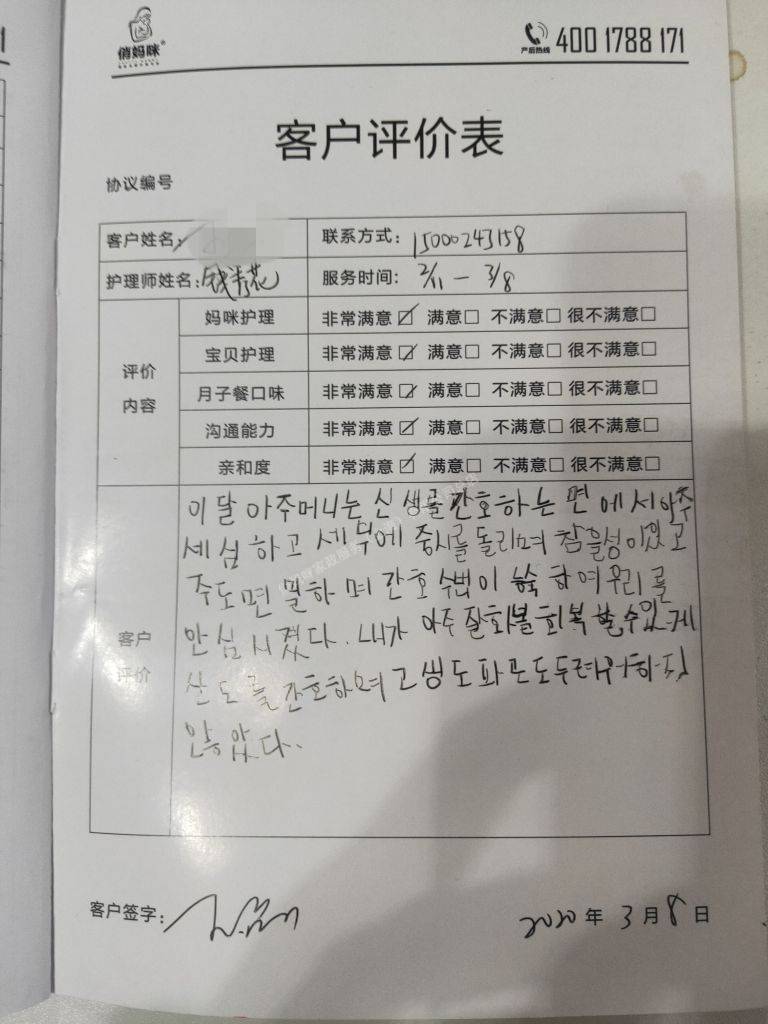 俏妈咪
产后热线 400 1788 171
客户评价表
协议编号
客户姓名: 联系方式: 15000243158
护理师姓名: 钱秀花 服务时间: 2/11 — 3/8
评价内容
妈咪护理 非常满意☑ 满意□ 不满意□ 很不满意□
宝贝护理 非常满意☑ 满意□ 不满意□ 很不满意□
月子餐口味 非常满意☑ 满意□ 不满意□ 很不满意□
沟通能力 非常满意☑ 满意□ 不满意□ 很不满意□
亲和度 非常满意☑ 满意□ 不满意□ 很不满意□
客户评价
이달 아주머니는 신생를 간호하는 면에서 아주
세심하고 세부에 중시를 돌리며 참을성이있고
주도면밀하며 간호 수법이 하여 우리를
안심시켰다. 내가 아주 잘 회복할수있게
산도를 간호하며 고생도 피곤도 두려워하지
않았다.
客户签字:
2020 年 3 月 8 日